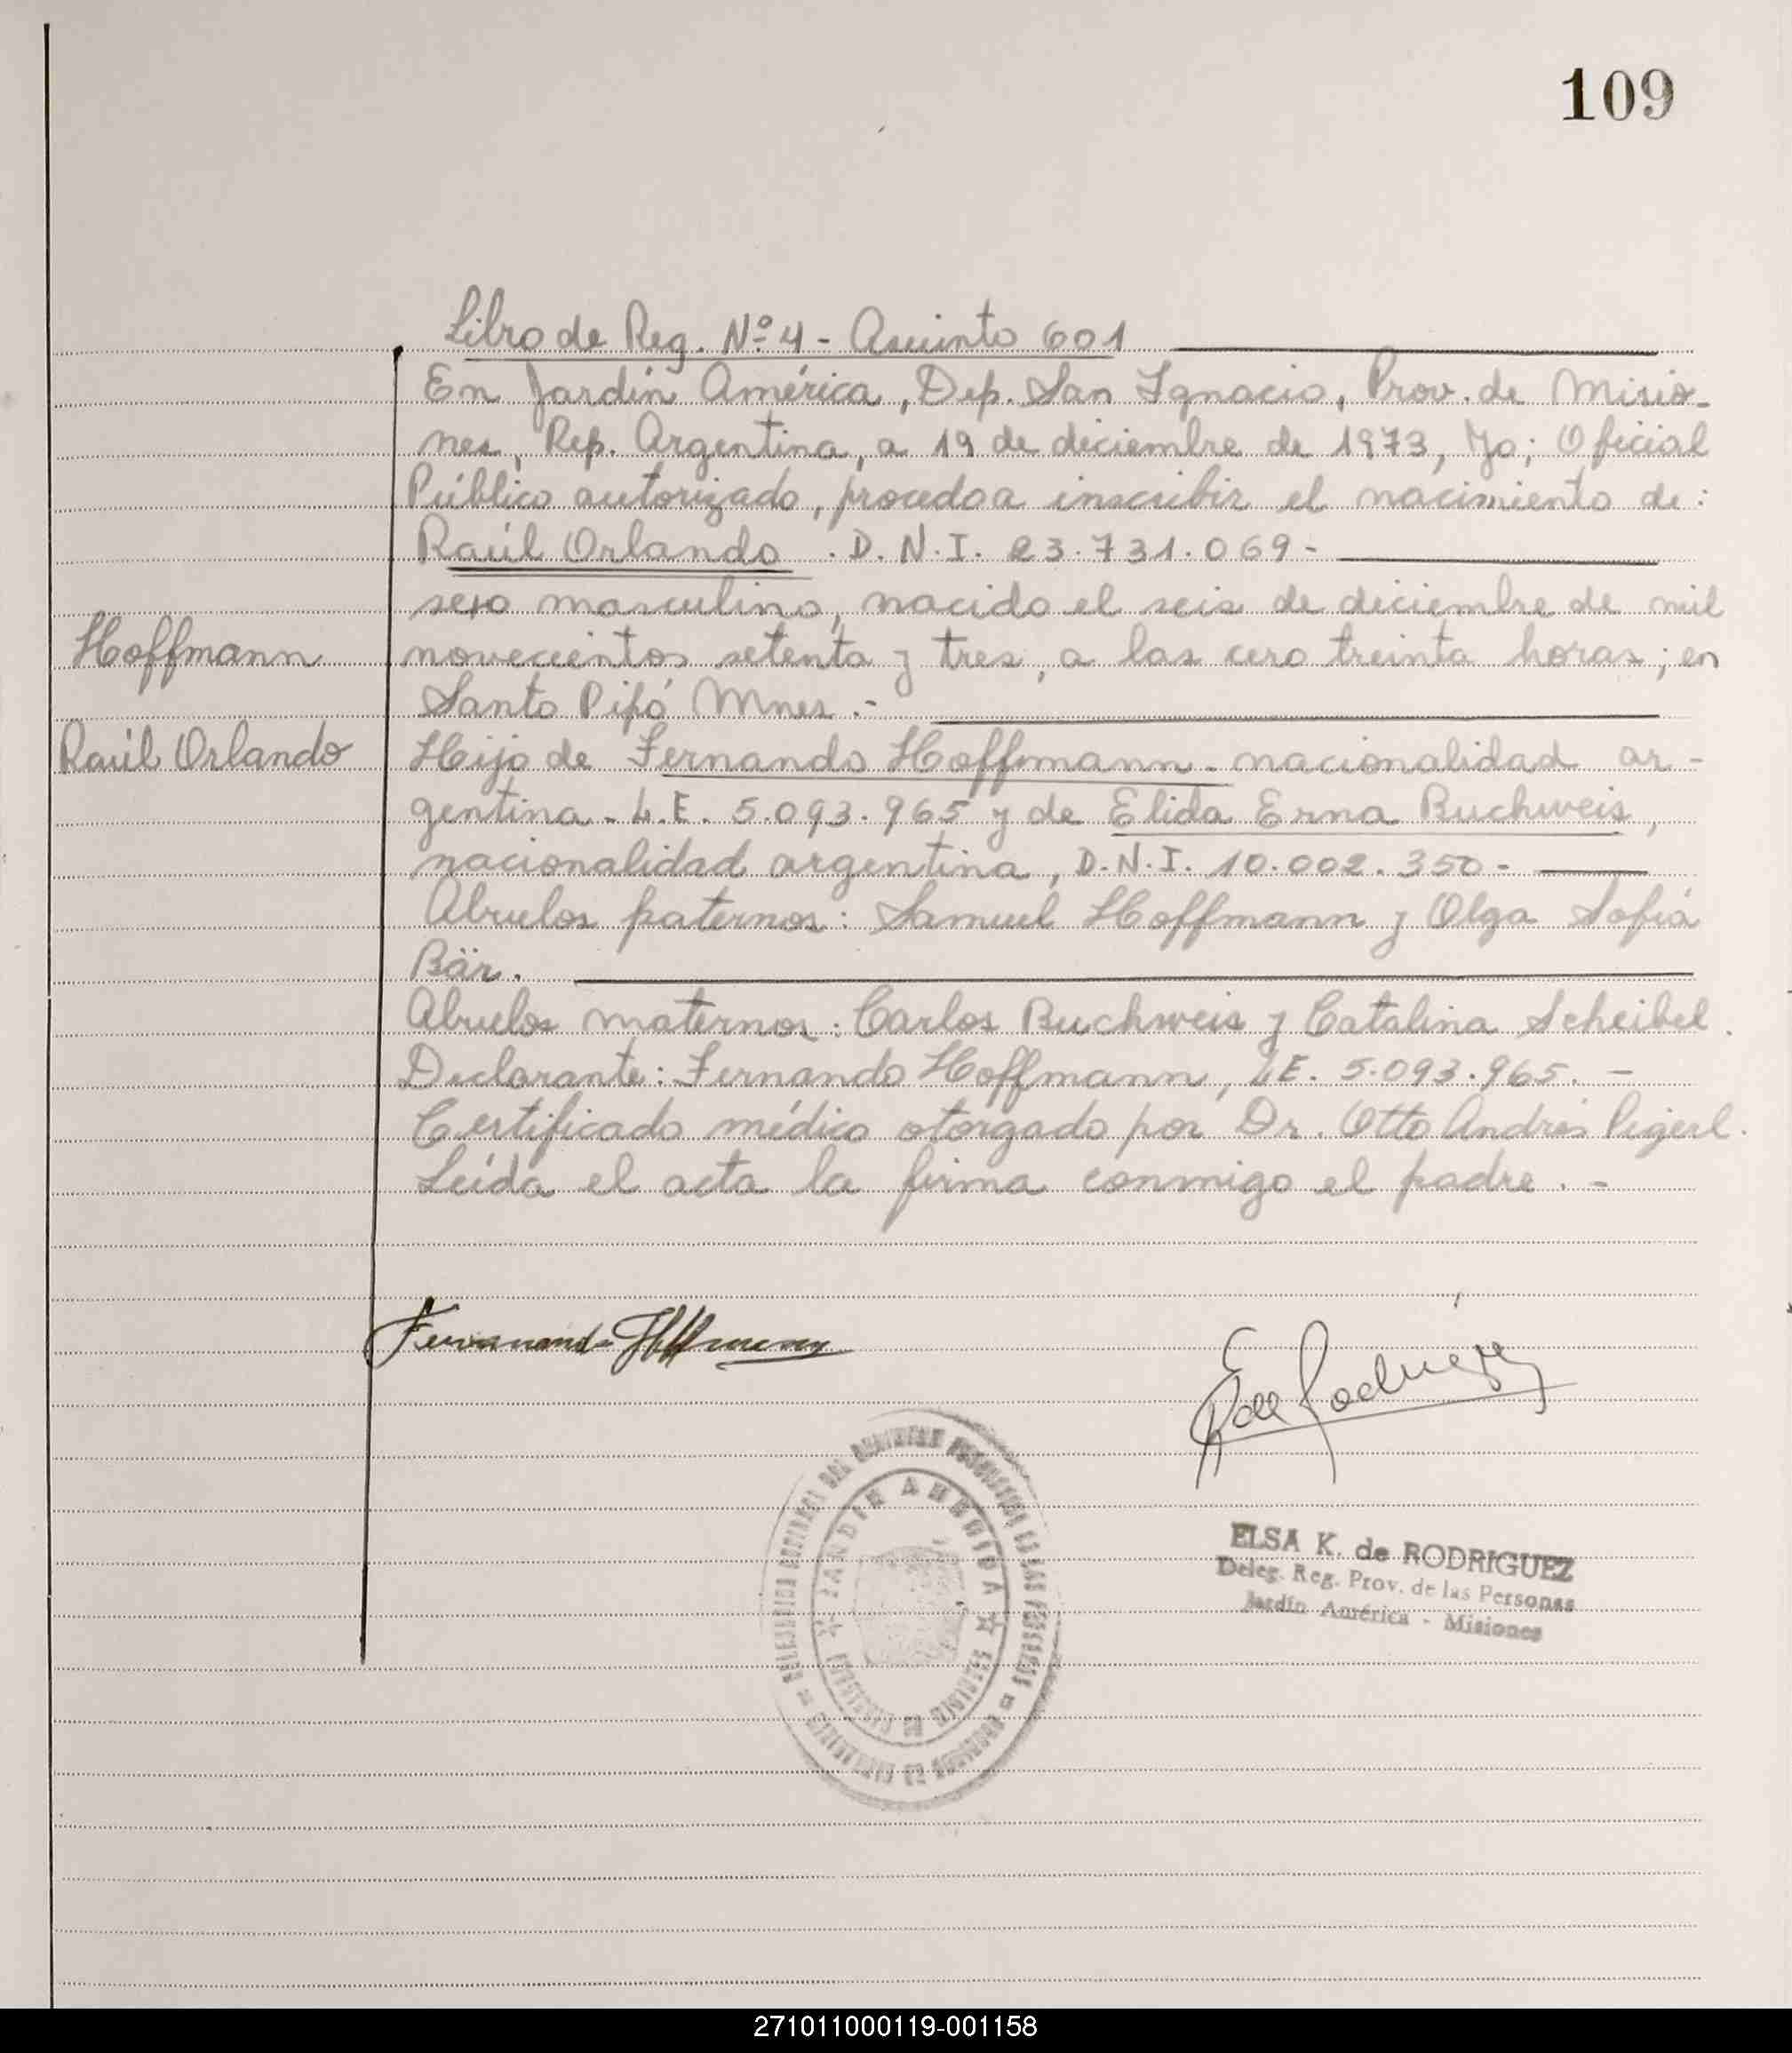 109
Libro de Reg. Nº 4 - Asuinto 601
En Jardín América, Dep. San Ignacio, Prov. de Misio-
nes, Rep. Argentina, a 19 de diciembre de 1973, Yo; Oficial
Público autorizado, procedo a inscribir el nacimiento de:
Raúl Orlando . D. N. I. 23.731.069-
sexo masculino, nacido el seis de diciembre de mil
Hoffmann
novecientos setenta y tres, a las cero treinta horas; en
Santo Pipó Mnes.-
Raúl Orlando
Hijo de Fernando Hoffmann - nacionalidad ar-
gentina - L.E. 5.093.965 y de Elida Erna Buchweis,
nacionalidad argentina, D.N.I. 10.002.350-
Abuelos paternos: Samuel Hoffmann y Olga Sofía
Bär.
Abuelos maternos: Carlos Buchweis y Catalina Scheibel.
Declarante: Fernando Hoffmann, L.E. 5.093.965. -
Certificado médico otorgado por Dr. Otto Andrés Pigerl.
Leída el acta la firma conmigo el padre. -
Fernando Hoffmann
E K de Rodriguez
JARDIN AMERICA
ELSA K. de RODRIGUEZ
Deleg. Reg. Prov. de las Personas
Jardín América - Misiones
271011000119-001158